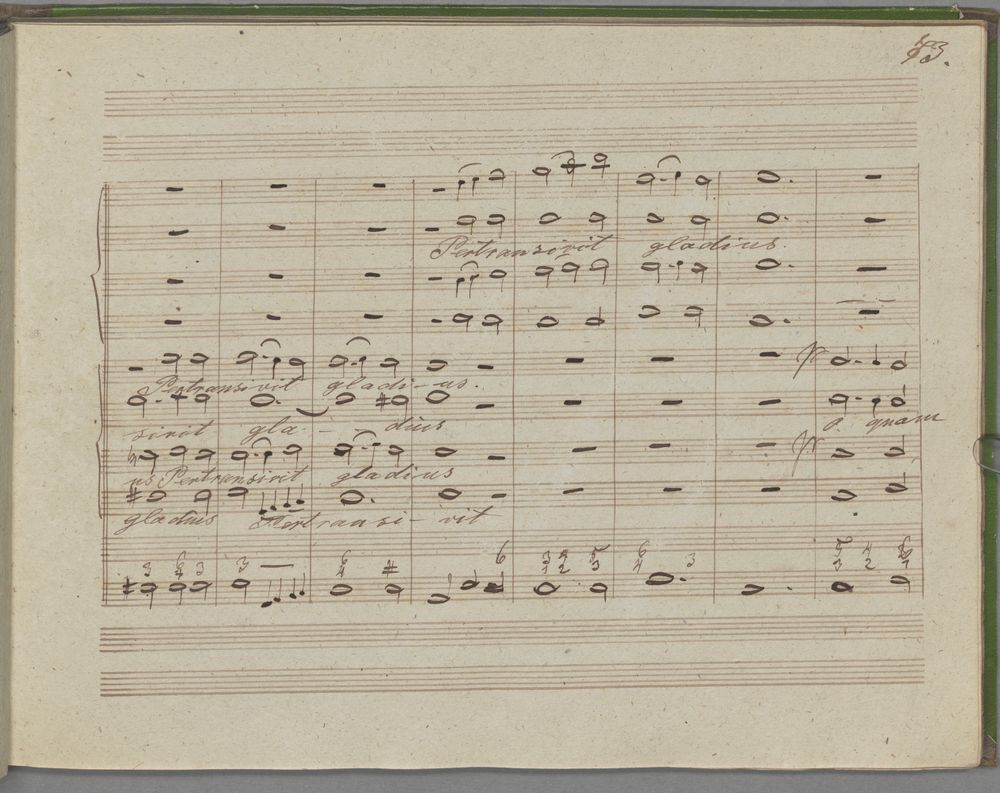 73.
Pertransivit gladius.
p
Pertransivit gladi-us.
sivit gla - - dius o quam
p
us Pertransivit gladius
gladius Pertransi- vit
6 3 4 5 6 5 4 6
3 6 3 3 6 # 1 2 3 4 3 3 2
4 4